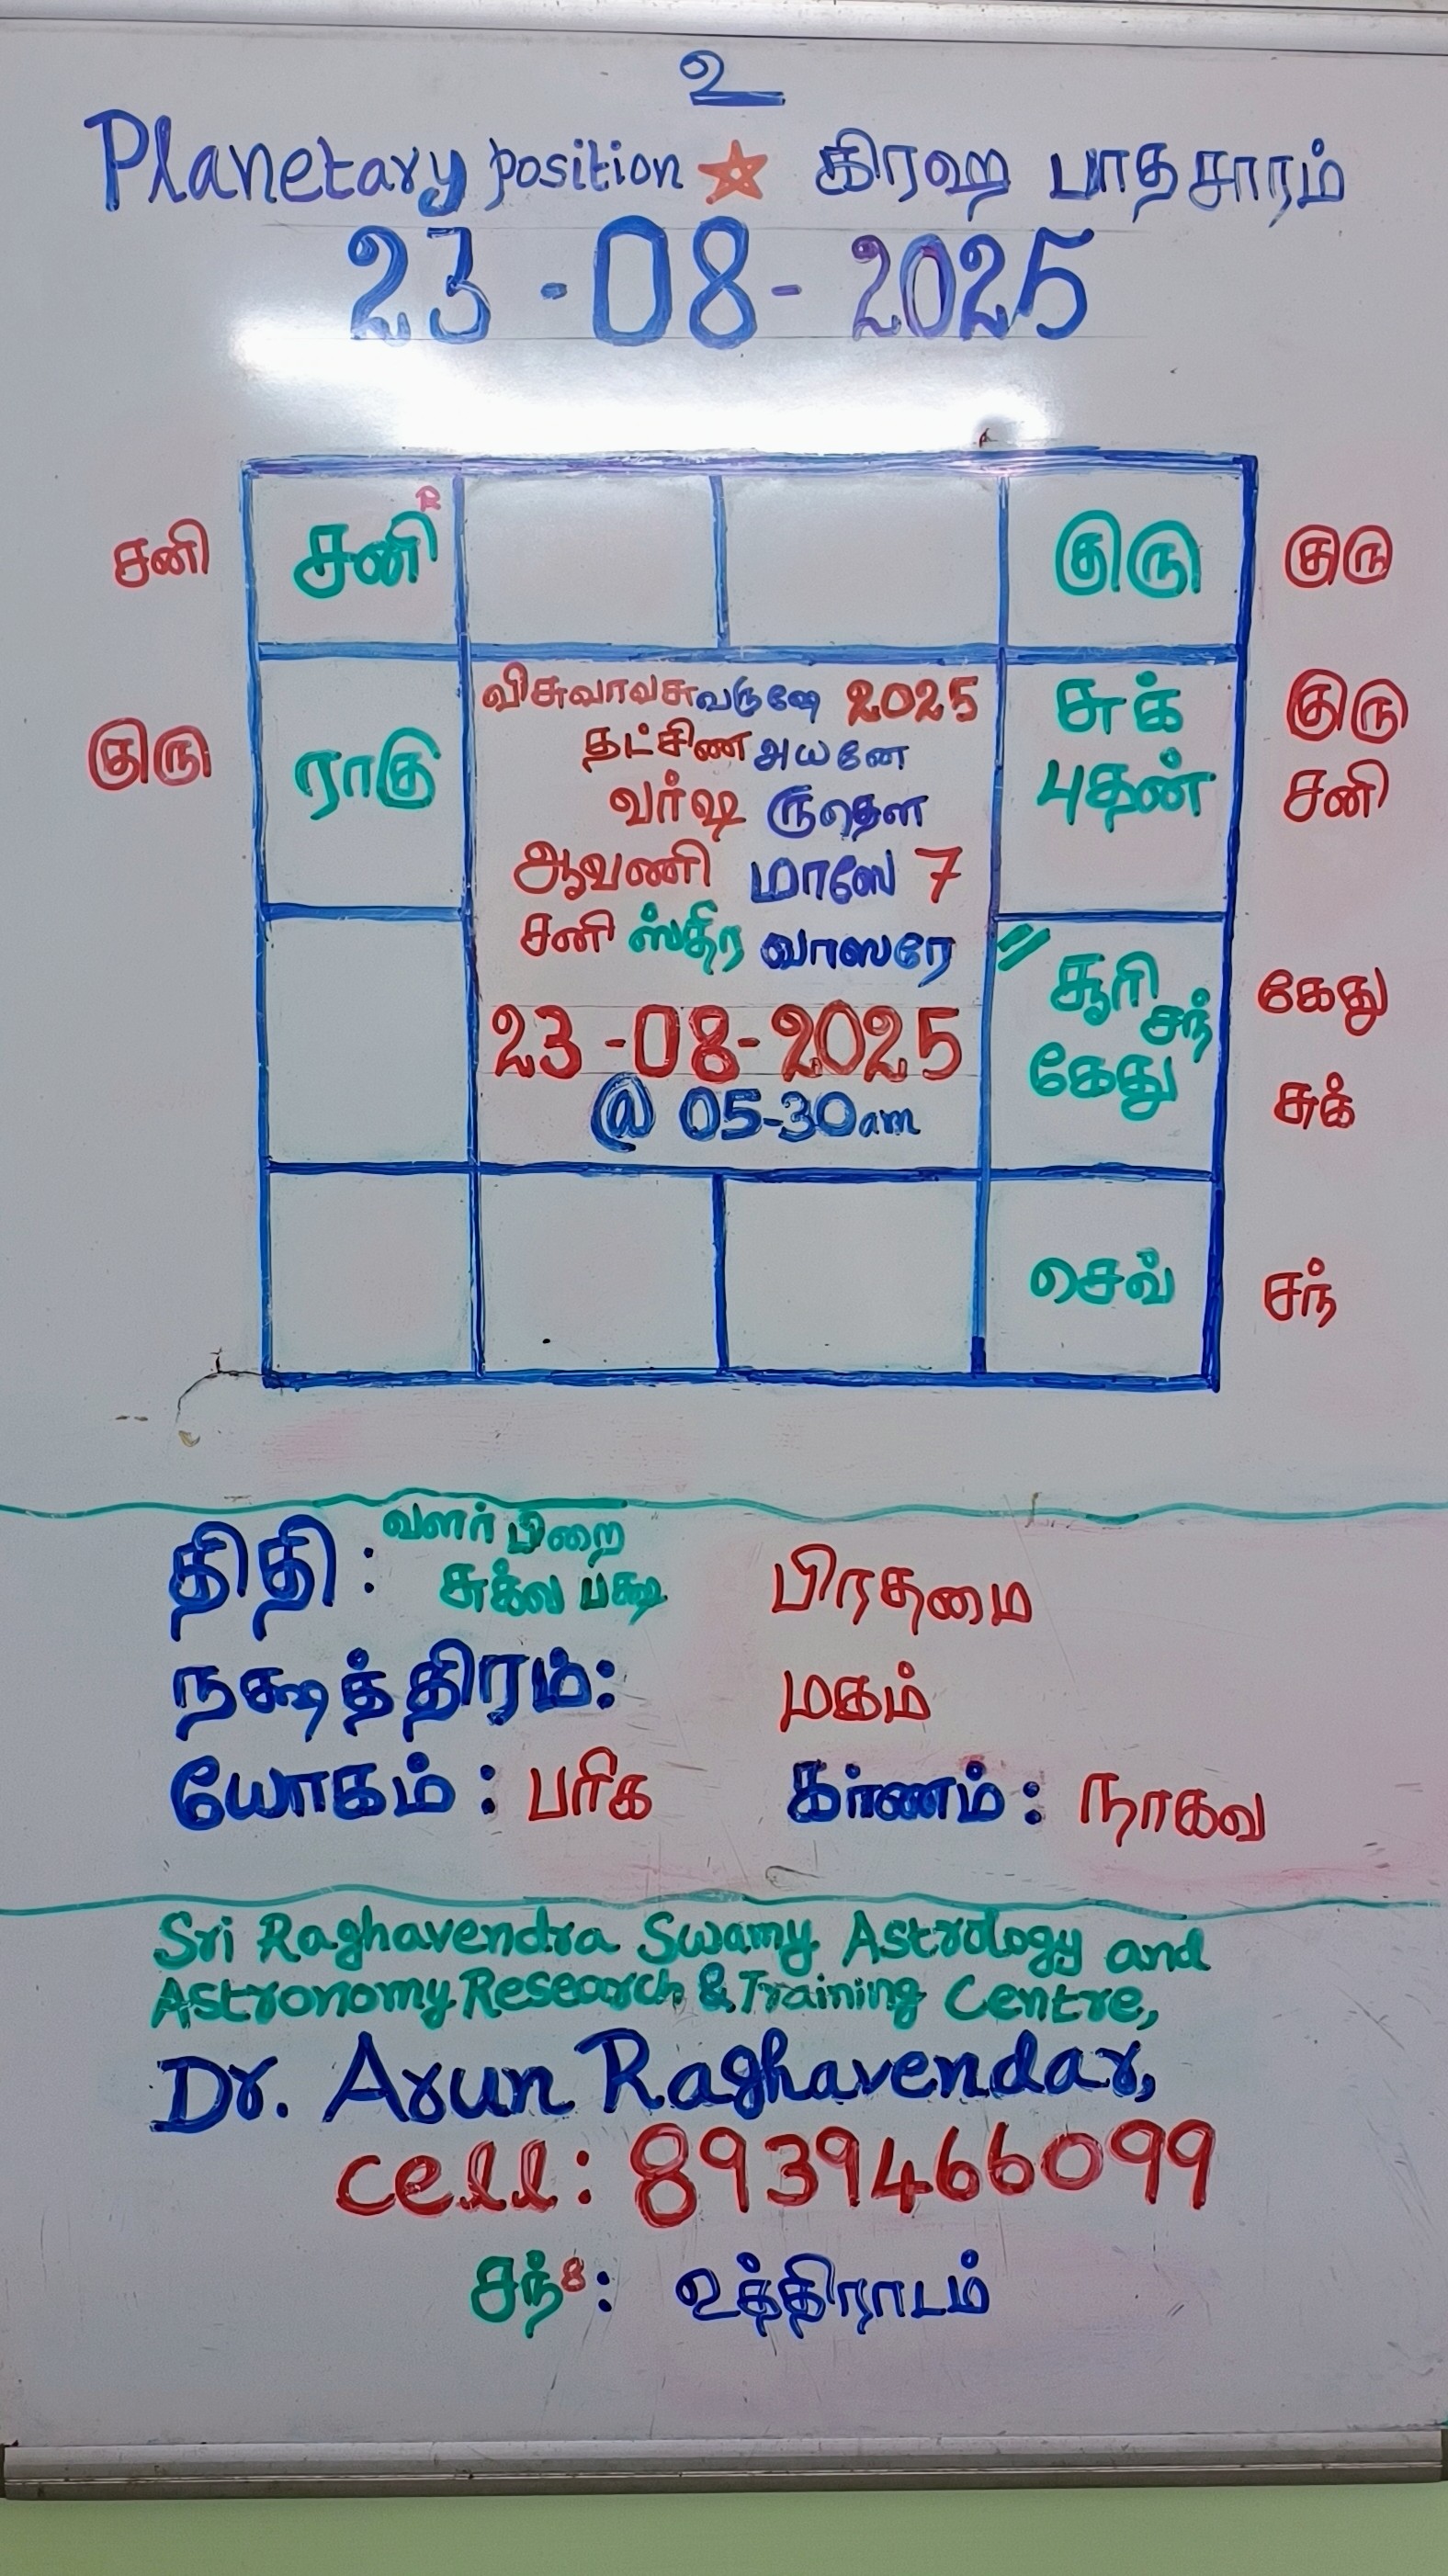 உ
Planetary position ☆ கிரஹ பாதசாரம்
23-08-2025
சனி சனி R குரு குரு
விசுவாவசுவருஷே 2025
தட்சிணஅயனே
வர்ஷ ருதௌ
ஆவணி மாஸே 7
சனி ஸ்திர வாஸரே
23-08-2025
@ 05-30am
குரு ராகு
சுக் குரு
புதன் சனி
சூரி சந் கேது
கேது சுக்
செவ் சந்
திதி: வளர்பிறை
சுக்ல பக்ஷ பிரதமை
நக்ஷத்திரம்: மகம்
யோகம்: பரிக கர்ணம்: நாகவ
Sri Raghavendra Swamy Astrology and
Astronomy Research & Training Centre,
Dr. Arun Raghavendar,
cell: 8939466099
சந்8: உத்திராடம்